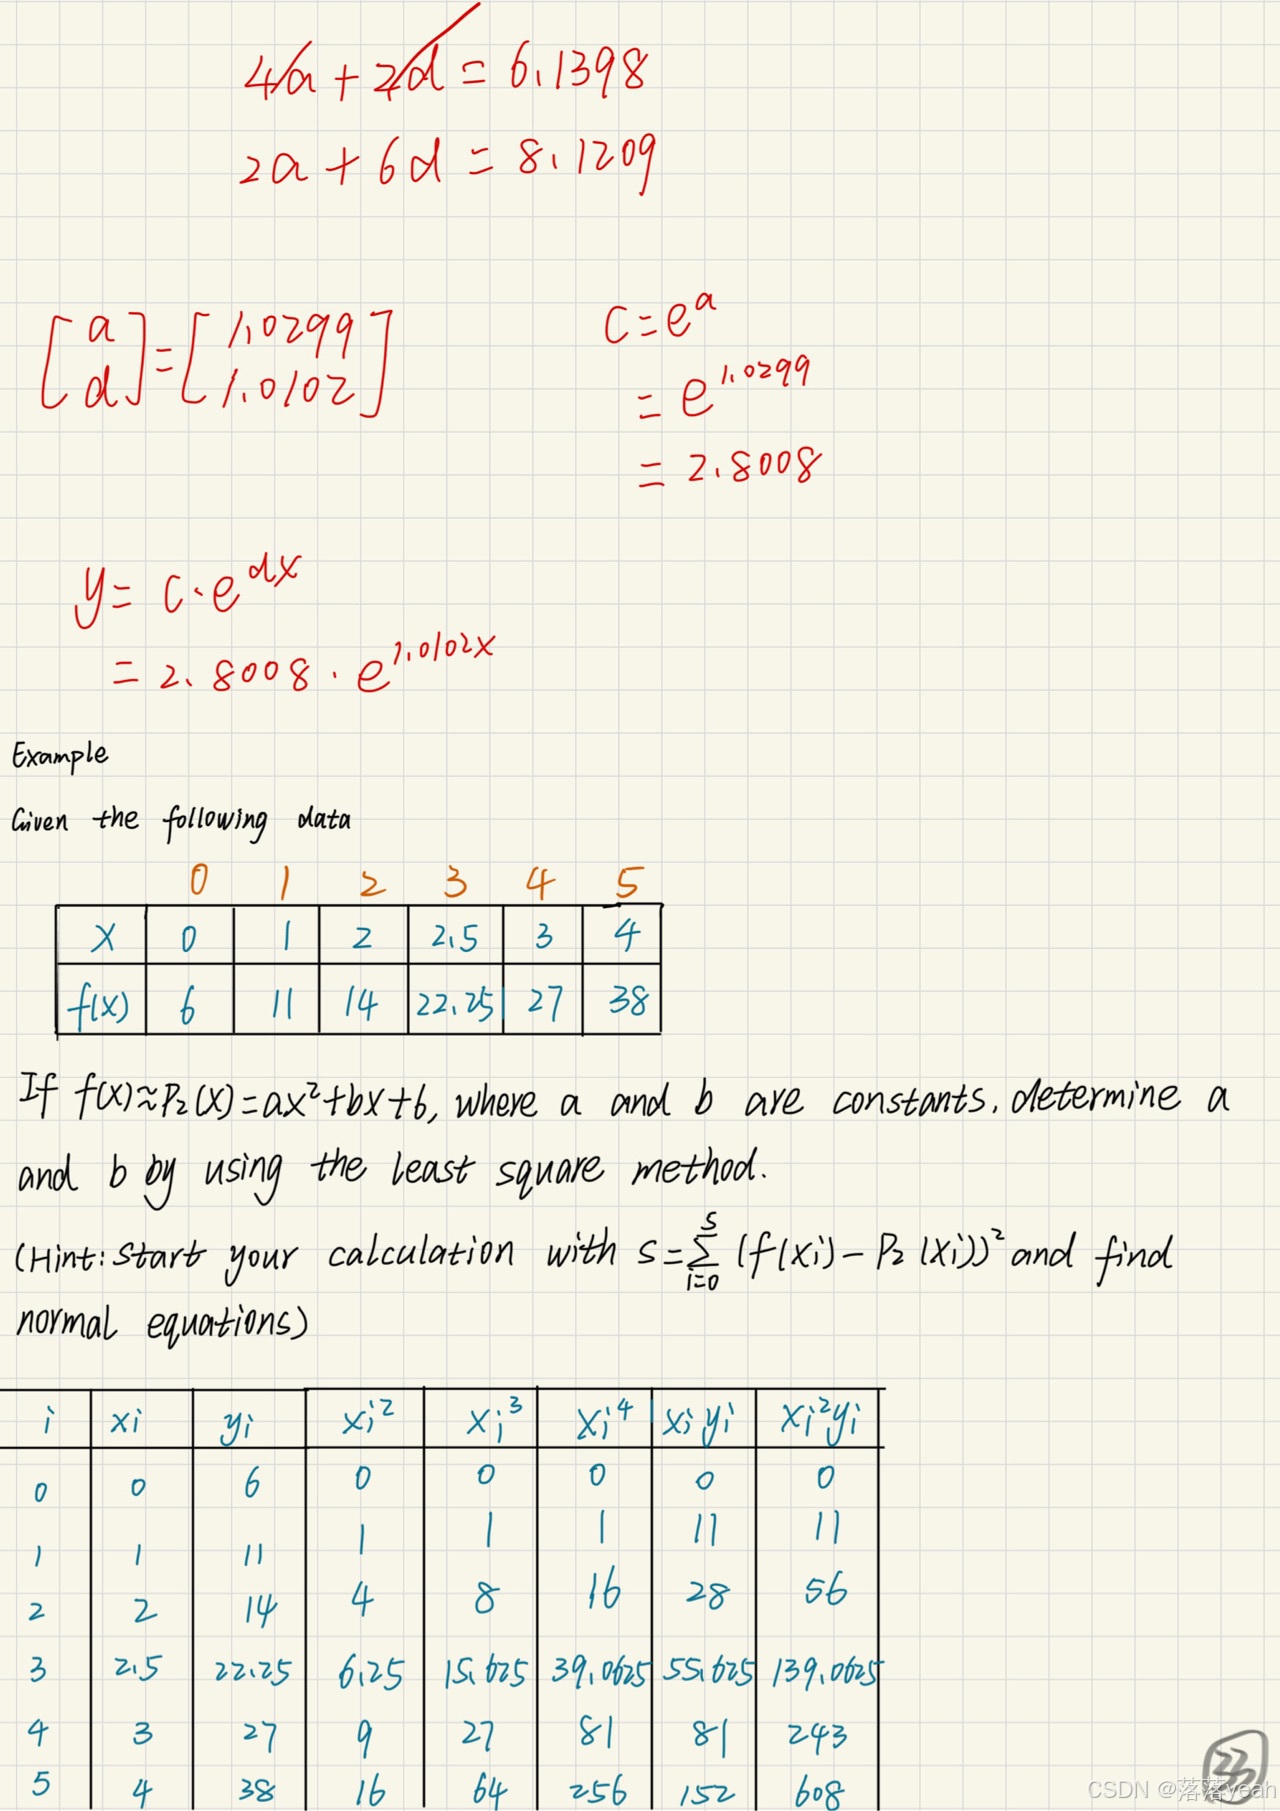 4a + 2d = 6.1398
2a + 6d = 8.1209
[a d] = [1.0299 1.0102]
c = e^a
= e^1.0299
= 2.8008
y = c·e^dx
= 2.8008 · e^1.0102x
Example
Given the following data
0 1 2 3 4 5
x 0 1 2 2.5 3 4
f(x) 6 11 14 22.25 27 38
If f(x)≈P₂(x)=ax²+bx+6, where a and b are constants, determine a
and b by using the least square method.
(Hint: Start your calculation with S=∑_{i=0}^{5} (f(xi)−P₂(xi))² and find
normal equations)
i xi yi xi² xi³ xi⁴ xiyi xi²yi
0 0 6 0 0 0 0 0
1 1 11 1 1 1 11 11
2 2 14 4 8 16 28 56
3 2.5 22.25 6.25 15.625 39.0625 55.625 139.0625
4 3 27 9 27 81 81 243
5 4 38 16 64 256 152 608
CSDN @落落yeah